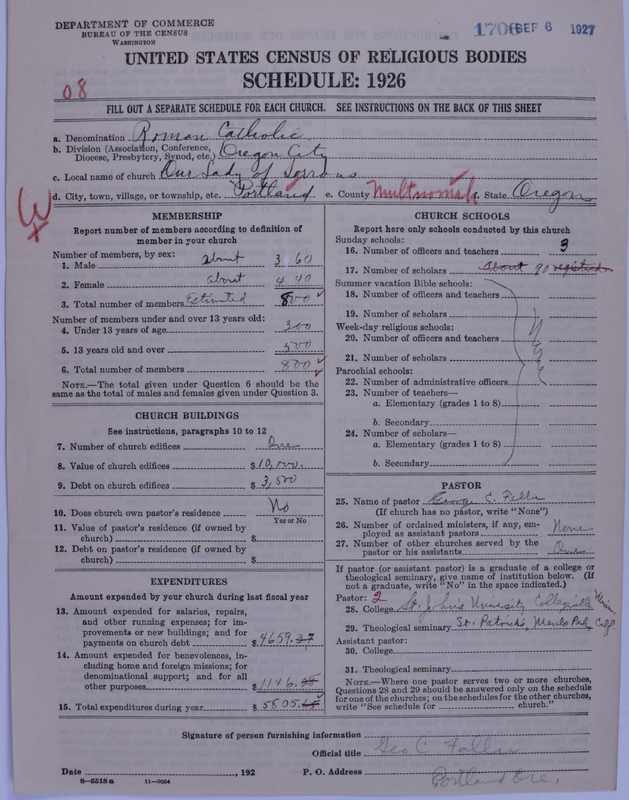 DEPARTMENT OF COMMERCE
BUREAU OF THE CENSUS
WASHINGTON
1706 SEP 6 1927
UNITED STATES CENSUS OF RELIGIOUS BODIES
SCHEDULE: 1926
08
FILL OUT A SEPARATE SCHEDULE FOR EACH CHURCH. SEE INSTRUCTIONS ON THE BACK OF THIS SHEET
a. Denomination Roman Catholic
b. Division (Association, Conference, Diocese, Presbytery, Synod, etc.) Oregon City
c. Local name of church Our Lady of Sorrows
d. City, town, village, or township, etc. Portland e. County Multnomah f. State Oregon
MEMBERSHIP
Report number of members according to definition of
member in your church
Number of members, by sex:
1. Male about 360
2. Female about 440
3. Total number of members Estimated 800
Number of members under and over 13 years old:
4. Under 13 years of age 300
5. 13 years old and over 500
6. Total number of members 800
NOTE.—The total given under Question 6 should be the
same as the total of males and females given under Question 3.
CHURCH BUILDINGS
See instructions, paragraphs 10 to 12
7. Number of church edifices One
8. Value of church edifices $10,000.
9. Debt on church edifices $3,500
10. Does church own pastor's residence No
Yes or No
11. Value of pastor's residence (if owned by
church) $
12. Debt on pastor's residence (if owned by
church) $
EXPENDITURES
Amount expended by your church during last fiscal year
13. Amount expended for salaries, repairs,
and other running expenses; for im-
provements or new buildings; and for
payments on church debt $4659.37
14. Amount expended for benevolences, in-
cluding home and foreign missions; for
denominational support; and for all
other purposes $1146.
15. Total expenditures during year $5805.
CHURCH SCHOOLS
Report here only schools conducted by this church
Sunday schools:
16. Number of officers and teachers 3
17. Number of scholars about 90 registered
Summer vacation Bible schools:
18. Number of officers and teachers
19. Number of scholars
Week-day religious schools:
20. Number of officers and teachers
21. Number of scholars
Parochial schools:
22. Number of administrative officers
23. Number of teachers—
a. Elementary (grades 1 to 8)
b. Secondary
24. Number of scholars—
a. Elementary (grades 1 to 8)
b. Secondary
PASTOR
25. Name of pastor George C.
(If church has no pastor, write "None")
26. Number of ordained ministers, if any, em-
ployed as assistant pastors None
27. Number of other churches served by the
pastor or his assistants
If pastor (or assistant pastor) is a graduate of a college or
theological seminary, give name of institution below. (If
not a graduate, write "No" in the space indicated.)
Pastor: 2
28. College St. John's University Collegeville Minn.
29. Theological seminary St. Patricks, Menlo Park, Calif
Assistant pastor:
30. College
31. Theological seminary
NOTE.—Where one pastor serves two or more churches,
Questions 28 and 29 should be answered only on the schedule
for one of the churches; on the schedules for the other churches,
write "See schedule for church."
Signature of person furnishing information
Official title Geo C.
Date , 192 P. O. Address Portland Ore.
8—5518a 11—9034